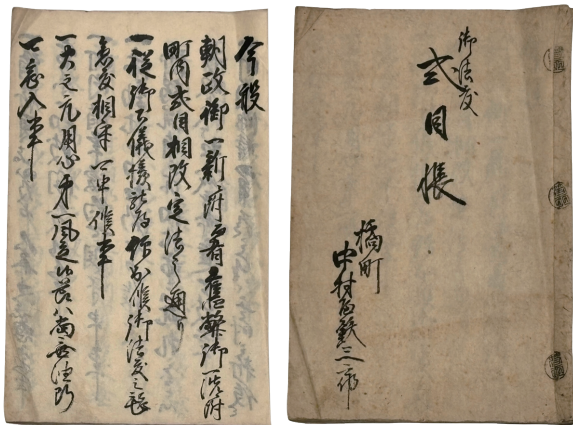 御法度
式目帳
橘町
中村
今般
朝政御一新 舊弊御一洗
町内式目相改定法之通り
一従御公儀様被為仰出候御法度之趣
急度相守可申候事
一火之元用心第一風立候節ハ尚無油断
可念入事